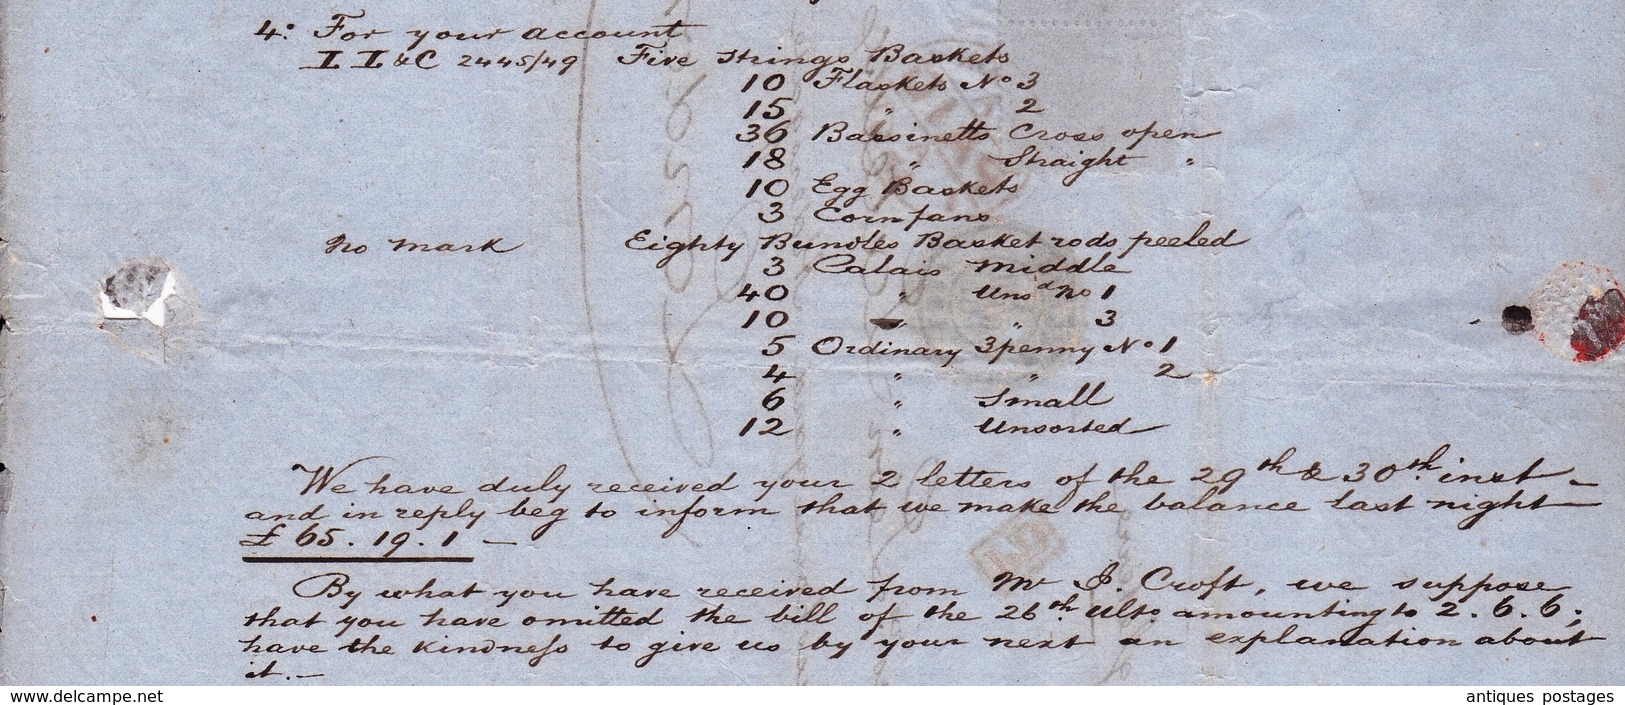 4: For your account
I I & C 2445/49 Five Strings Baskets
10 Flaskets No 3
15 " 2
36 Bassinetts Cross open
18 " Straight "
10 Egg Baskets
3 Cornfans
no mark Eighty Bundles Basket rods peeled
3 Calais middle
40 " Unsd No 1
10 " " 3
5 Ordinary 3penny No 1
4 " " 2
6 " Small
12 " Unsorted
We have duly received your 2 letters of the 29th & 30th. inst -
and in reply beg to inform that we make the balance last night
£ 65. 19. 1 -
By what you have received from Mr J. Croft, we suppose
that you have omitted the bill of the 26th. ulto. amounting to 2. 6. 6;
have the kindness to give us by your next an explanation about
it. -
www.delcampe.net
antiques_postages